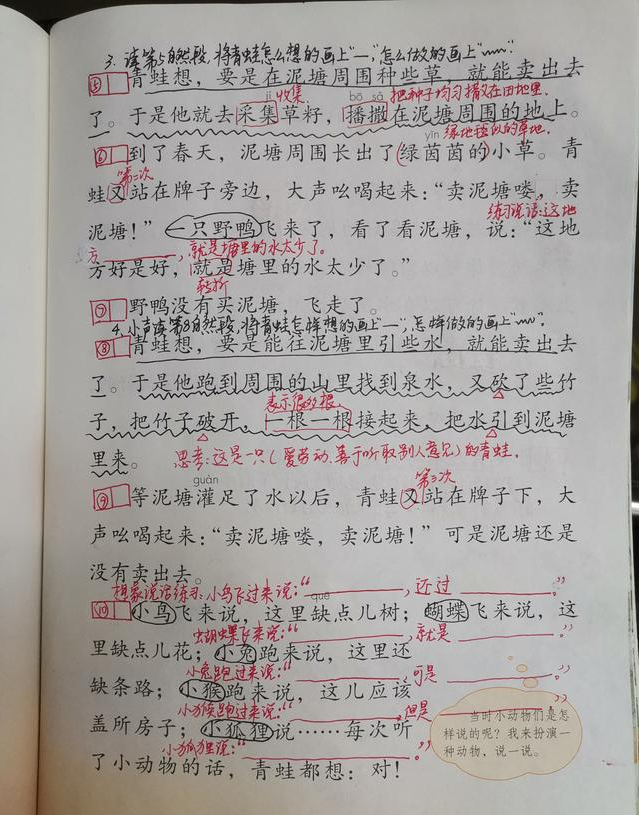 3. 读第5自然段,将青蛙怎么想的画上"—",怎么做的画上"﹏"。
⑤ 青蛙想,要是在泥塘周围种些草,就能卖出去
jí 收集 bō sǎ 把种子均匀撒在田地里.
了。于是他就去采集草籽,播撒在泥塘周围的地上。
yīn 绿地毯似的草地.
⑥ 到了春天,泥塘周围长出了绿茵茵的小草。青
第二次
蛙又站在牌子旁边,大声吆喝起来:“卖泥塘喽,卖
练习说话:这地
泥塘!”一只野鸭飞来了,看了看泥塘,说:“这地
方________,就是塘里的水太少了。
方好是好,就是塘里的水太少了。”
转折
⑦ 野鸭没有买泥塘,飞走了。
4. 小声读第8自然段,将青蛙怎样想的画上"—",怎样做的画上"﹏"。
⑧ 青蛙想,要是能往泥塘里引些水,就能卖出去
了。于是他跑到周围的山里找到泉水,又砍了些竹
表示很多根
子,把竹子破开,一根一根接起来,把水引到泥塘
里来。 思考:这是一只(爱劳动、善于听取别人意见)的青蛙.
guàn 第三次
⑨ 等泥塘灌足了水以后,青蛙又站在牌子下,大
声吆喝起来:“卖泥塘喽,卖泥塘!”可是泥塘还是
没有卖出去。
想象说话练习:小鸟飞过来说:“________,不过________。”
quē
⑩ 小鸟飞来说,这里缺点儿树;蝴蝶飞来说,这
蝴蝶飞来说:“________,就是________。”
里缺点儿花;小兔跑来说,这里还
小兔跑过来说:“________,可是________。”
缺条路;小猴跑来说,这儿应该
小猴跑过来说:“________,但是________。”
盖所房子;小狐狸说……每次听
小狐狸说:“________。”
了小动物的话,青蛙都想:对!
当时小动物们是怎
样说的呢?我来扮演一
种动物,说一说。